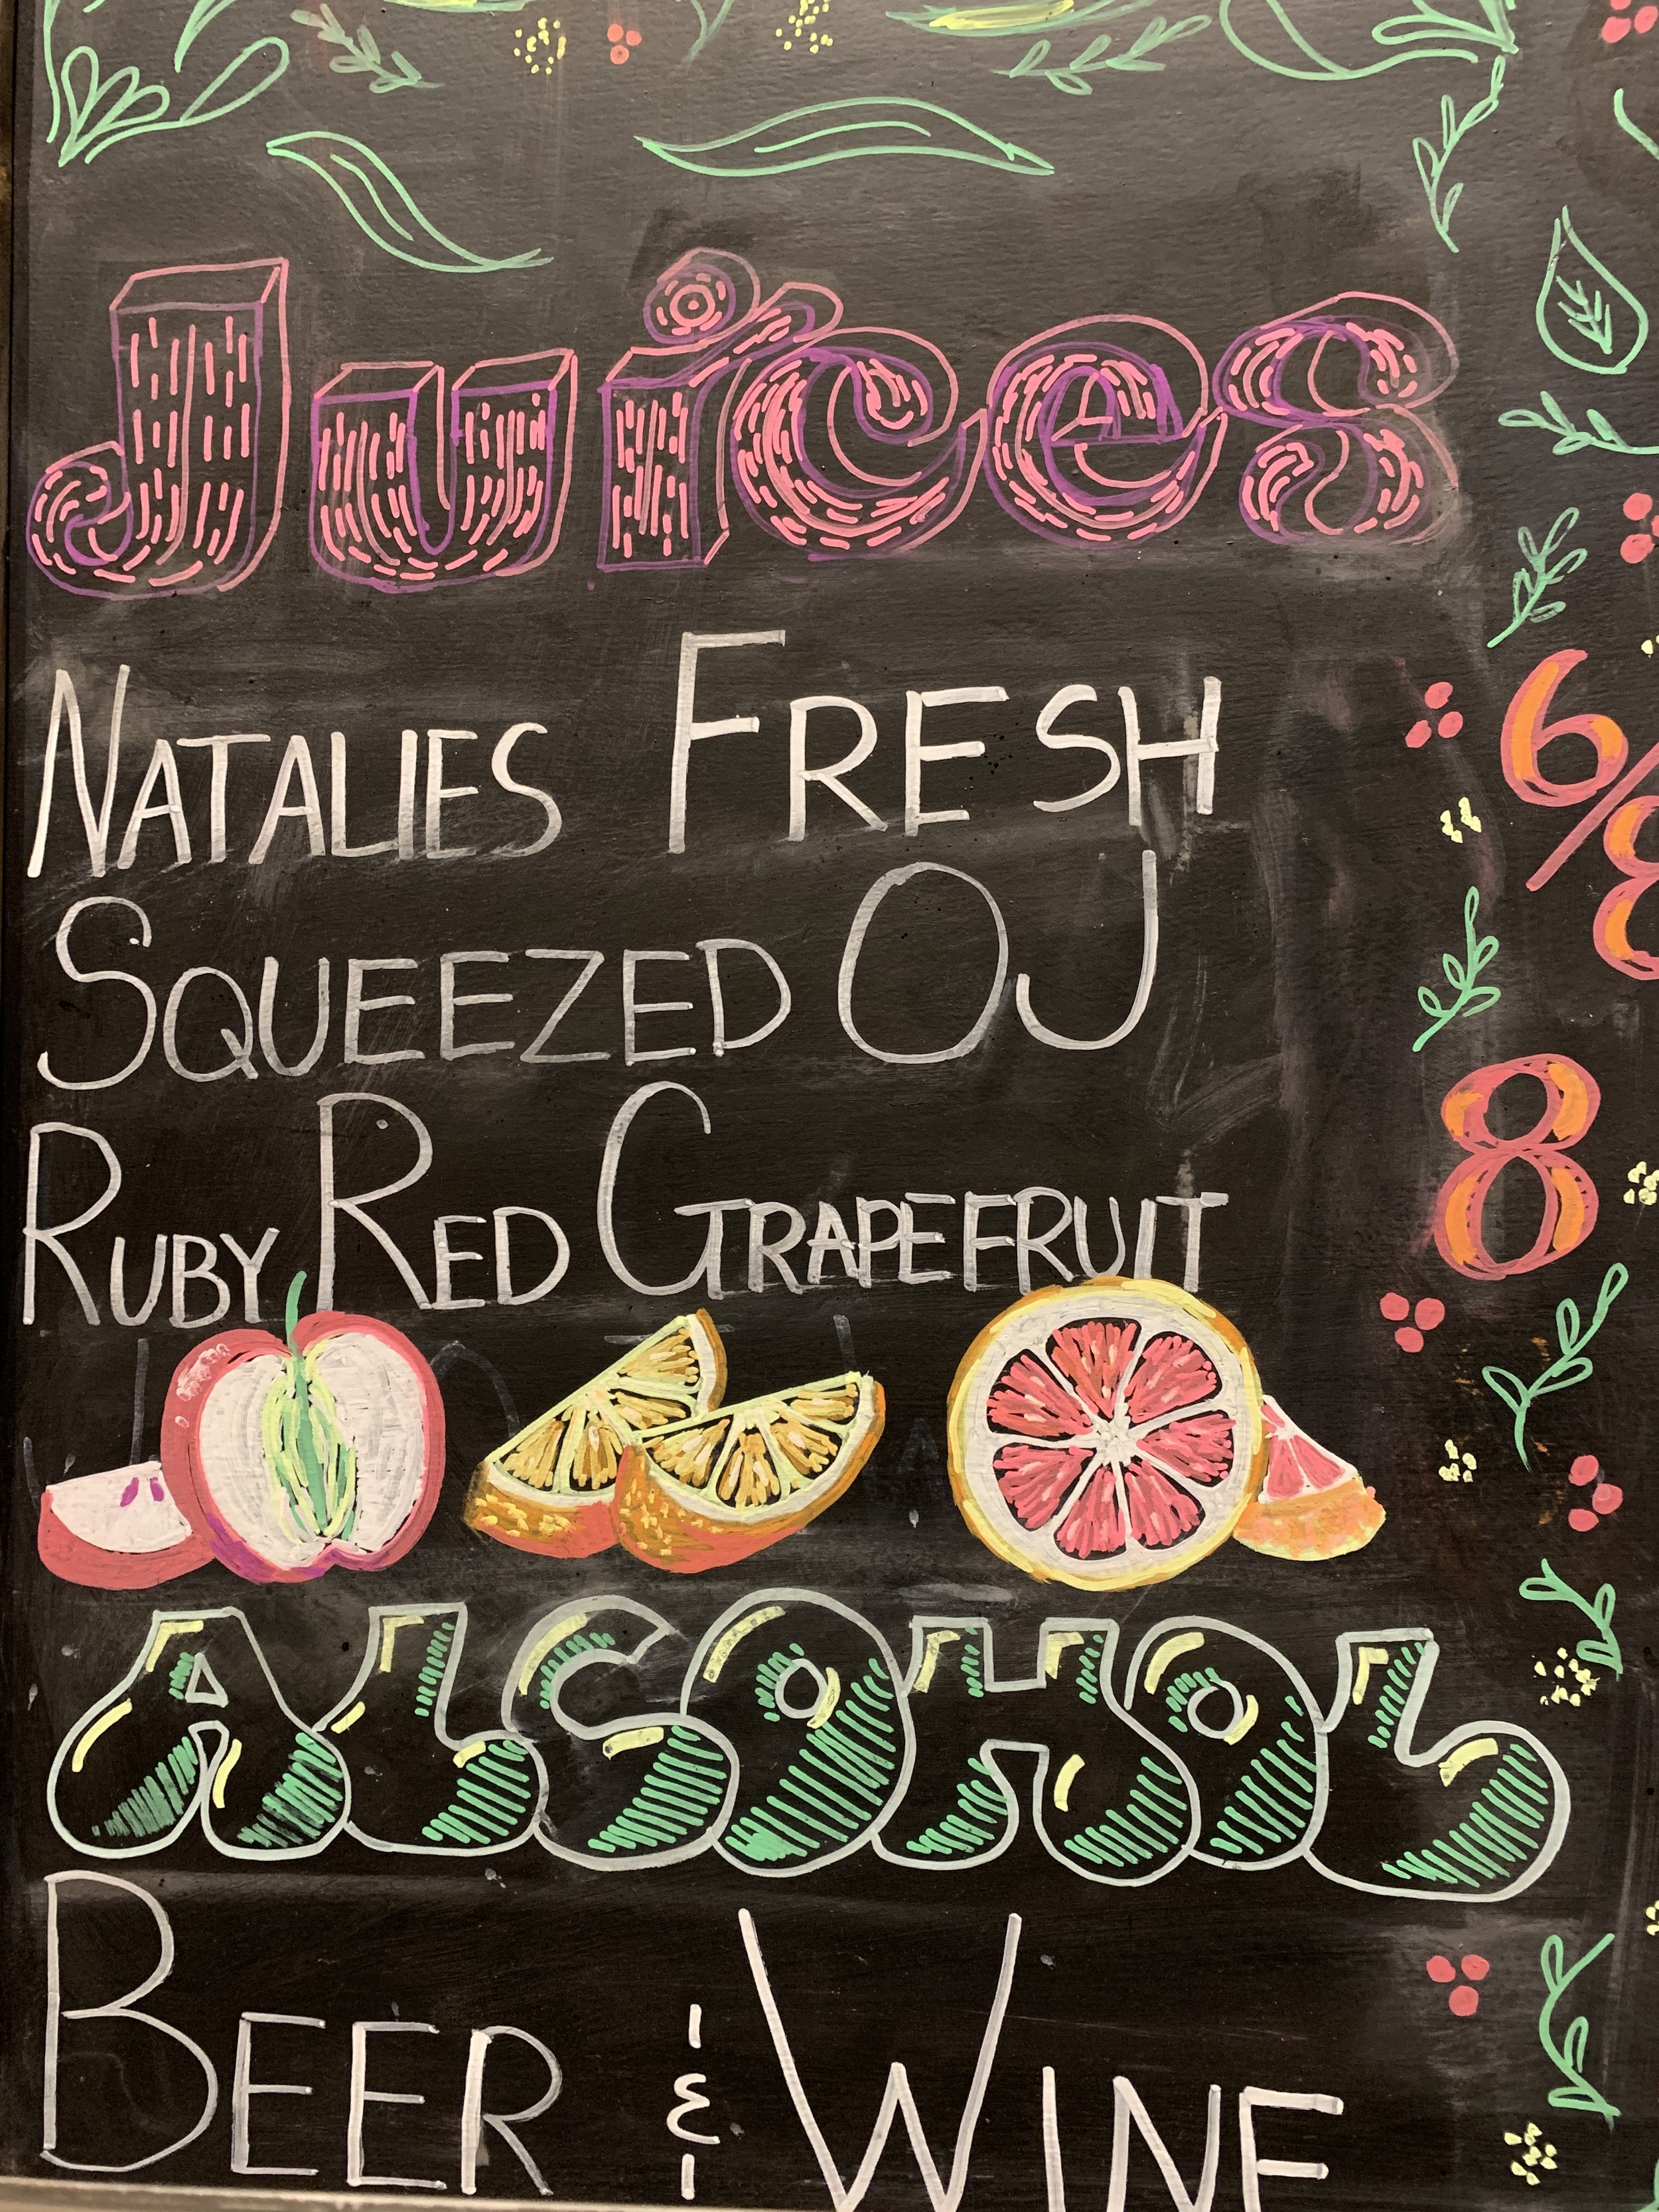 Juices
NATALIES FRESH
SQUEEZED OJ 6/8
RUBY RED GRAPEFRUIT 8
ALCOHOL
BEER & WINE